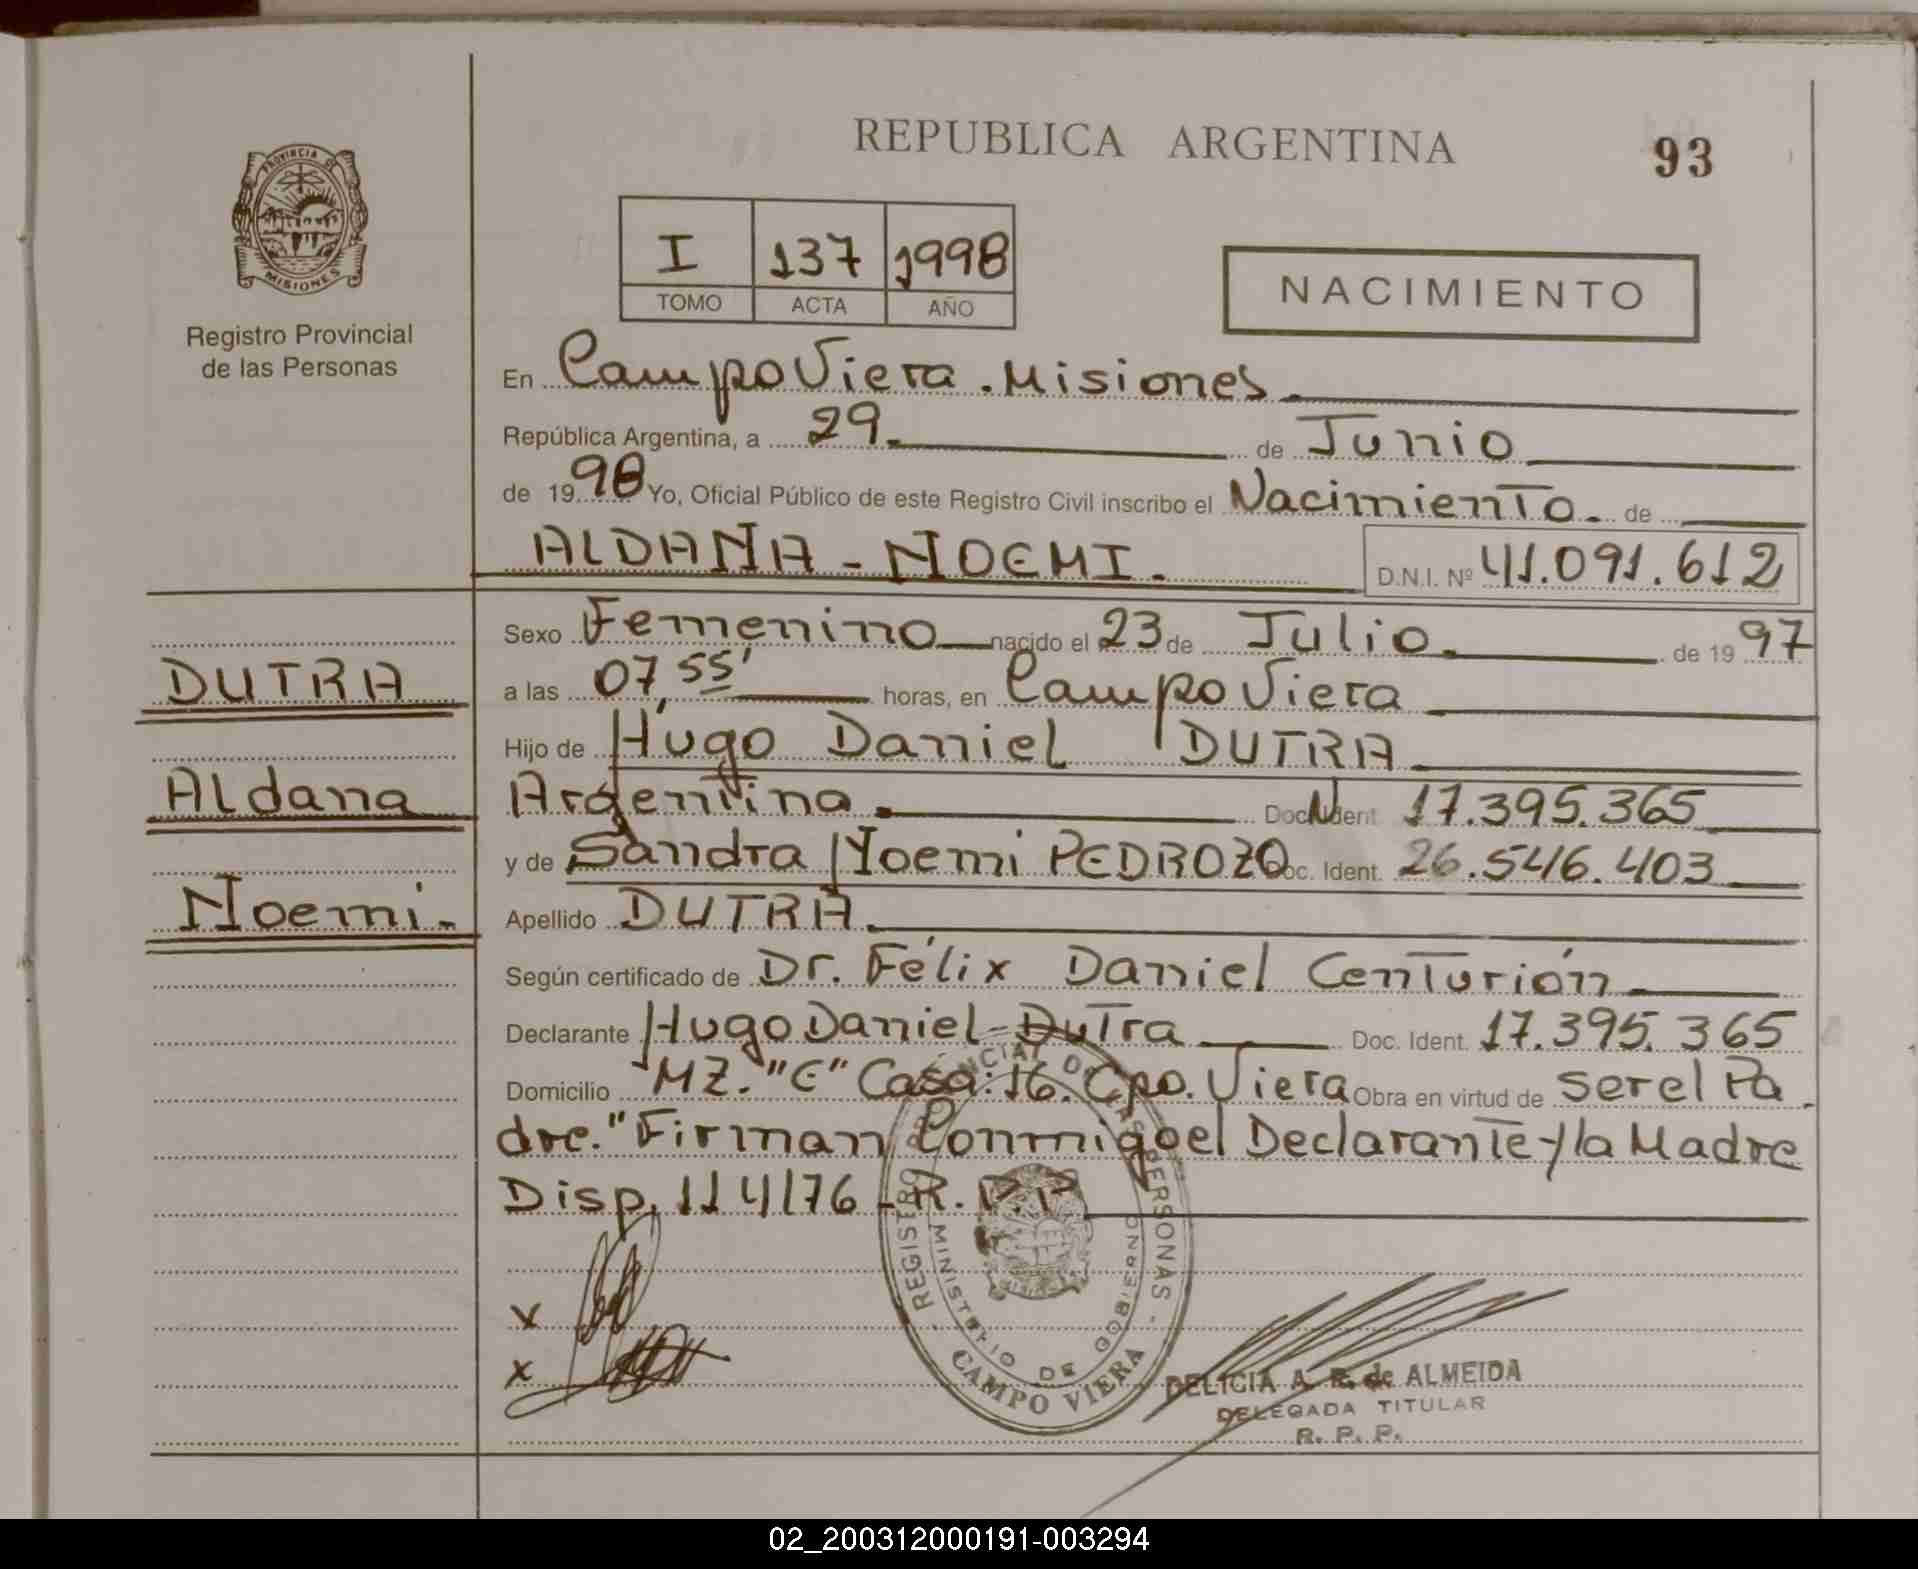 REPUBLICA ARGENTINA
93
PROVINCIA D
MISIONES
Registro Provincial
de las Personas
I 137 1998
TOMO ACTA AÑO
NACIMIENTO
En Campo Viera . Misiones
República Argentina, a 29 de Junio
de 1998 Yo, Oficial Público de este Registro Civil inscribo el Nacimiento. de
ALDANA - NOEMI. D.N.I. Nº 41.091.612
Sexo Femenino nacido el 23 de Julio. de 1997
DUTRA
a las 07,55' horas, en Campo Viera
Hijo de Hugo Daniel DUTRA
Aldana
Argentina. Doc. Ident. 17.395.365
y de Sandra Noemi PEDROZO Doc. Ident. 26.546.403
Noemi.
Apellido DUTRA.
Según certificado de Dr. Félix Daniel Centurión
Declarante Hugo Daniel Dutra Doc. Ident. 17.395.365
Domicilio MZ. "E" Casa: 16. Cpo. Viera Obra en virtud de ser el Pa
dre." Firman Conmigo el Declarante y la Madre
Disp. 114/76 - R.P.P
x
x
REGISTRO PROVINCIAL DE LAS PERSONAS
MINISTERIO DE GOBIERNO
CAMPO VIERA
DELICIA A. R. de ALMEIDA
DELEGADA TITULAR
R. P. P.
02_200312000191-003294